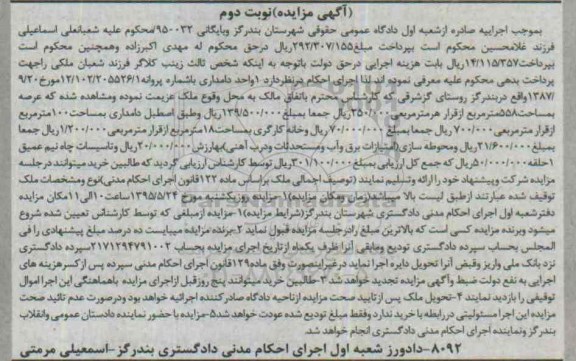 (آگهی مزایده)نوبت دوم
بموجب اجراییه صادره ازشعبه اول دادگاه عمومی حقوقی شهرستان بندرگز وبایگانی ۹۵۰۰۳۲/محکوم علیه شعبانعلی اسماعیلی
فرزند غلامحسین محکوم است بپرداخت مبلغ۲۹۲/۳۰۷/۱۵۵ریال درحق محکوم له مهدی اکبرزاده وهمچنین محکوم است
بپرداخت۱۴/۱۱۵/۳۵۷ریال بابت هزینه اجرایی درحق دولت باتوجه به اینکه شخص ثالث زینب کلاگر فرزند شعبان ملکی راجهت
پرداخت بدهی محکوم علیه معرفی نموده اند لذا اجرای احکام درنظردارد ۱واحد دامداری باشماره پروانه۱۲/۱۰۲/۲۰۵۵۲۶/۱مورخ۹/۲۰
/۱۳۸۷واقع دربندرگز روستای گزشرقی که کارشناس محترم باتفاق مالک به محل وقوع ملک عزیمت نموده ومشاهده شده که عرصه
بمساحت۵۵۸مترمربع ازقرار هرمترمربعی ۲۵۰/۰۰۰ریال جمعا بمبلغ۱۳۹/۵۰۰/۰۰۰ریال وطبق اصطبل دامداری بمساحت۱۰۰مترمربع
ازقرار مترمربعی ۷۰۰/۰۰۰ریال جمعا بمبلغ ۷۰/۰۰۰/۰۰۰ریال وخانه کارگری بمساحت۱۸مترمربع ازقرار مترمربعی۱/۲۰۰/۰۰۰ریال جمعا
بمبلغ۲۱/۶۰۰/۰۰۰ریال ومحوطه سازی(امتیازات برق وآب ومستحدثات ودرب آهنی)بهارزش ۲۰/۰۰۰/۰۰۰ریال وتاسیسات چاه نیم عمیق
۱حلقه۵۰/۰۰۰/۰۰۰ریال که جمع کل ارزیابی بمبلغ۳۰۱/۱۰۰/۰۰۰ریال توسط کارشناس ارزیابی گردید که طالبین خرید میتوانند درجلسه
مزایده شرکت وپیشنهاد خود را ارائه وتسلیم نمایند (توصیف اجمالی ملک براساس ماده ۱۲۲قانون اجرای احکام مدنی)نوع ومشخصات ملک
توقیف شده عبارتند ازطبق لیست بالا میباشد(زمان ومکان مزایده)۱-مزایده روزیکشنبه مورخ ۱۳۹۵/۵/۲۴ساعت۱۰الی۱۱مکان مزایده
دفترشعبه اول اجرای احکام مدنی دادگستری شهرستان بندرگز(شرایط مزایده)۱-مزایده ازمبلغی که توسط کارشناس تعیین شده شروع
میشود وبرنده مزایده کسی است که بالاترین مبلغ رادرجلسه مزایده قبول نماید ۲-برنده مزایده میبایست ده درصد مبلغ پیشنهادی را فی
المجلس بحساب سپرده دادگستری تودیع ومابقی آنرا ظرف یکماه ازتاریخ اجرای مزایده بحساب ۲۱۷۱۲۹۴۷۹۱۰۰۲سپرده دادگستری
نزد بانک ملی واریز وقبض آنرا تحویل دایره اجرا نماید درغیراینصورت وفق ماده۱۲۹قانون اجرای احکام مدنی سپرده پس ازکسرهزینه های
اجرایی به نفع دولت ضبط وآگهی مزایده تجدید خواهدشد ۳-طالبین خرید میتوانند پنج روزقبل ازاجرای مزایده باهماهنگی این اجرا اموال
توقیفی را بازدید نمایند ۴-تحویل ملک پس ازتایید صحت مزایده ازناحیه دادگاه صادرکننده اجرائیه خواهد بود ودرصورت عدم تائید صحت
مزایده این اجرا مسئولیتی دررابطه باخرید ندارد وفقط مبلغ تودیع شده عودت خواهد شد۵-مزایده با حضور نماینده دادستان عمومی وانقلاب
بندر گز ونماینده اجرای احکام مدنی دادگستری انجام خواهد شد.
۸۰۹۲-دادورز شعبه اول اجرای احکام مدنی دادگستری بندرگز-اسمعیلی مرمتی